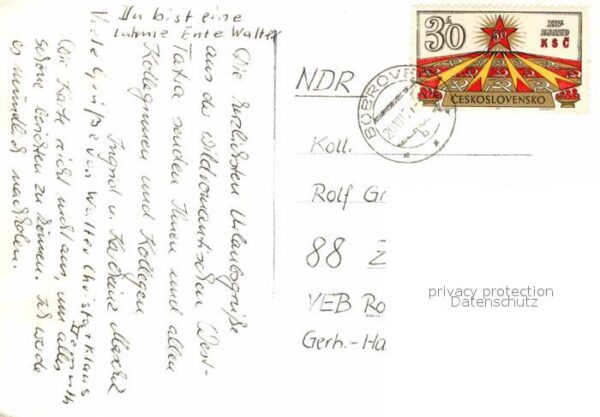 Du bist eine
lahme Ente Walter
Die herzlichsten Urlaubsgrüße
aus der wildromantischen West-
Tatra senden Ihnen und allen
Kolleginnen und Kollegen
Ingrid u. Karlheinz
Viele Grüße von Walter Christa Klaus
Die Karte reicht nicht aus, um alles
Schöne berichten zu können. Ich werde
es mündlich nachholen.
30h
50
XIV.
SJEZD
KSČ
ČESKOSLOVENSKO
BOBROV
NDR
Koll.
Rolf Gr
88 Z
VEB Ro
Gerh.-Ha
privacy protection
Datenschutz